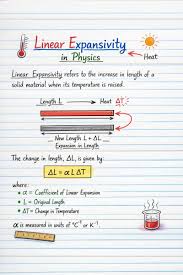 Linear Expansivity
in Physics
Heat
Linear Expansivity refers to the increase in length of a
solid material when its temperature is raised.
Length L → Heat ΔT
New Length L + ΔL
Expansion in Length
The change in length, ΔL, is given by:
ΔL = α L ΔT
where:
• α = Coefficient of Linear Expansion
• L = Original Length
• ΔT = Change in Temperature
α is measured in units of °C⁻¹ or K⁻¹.